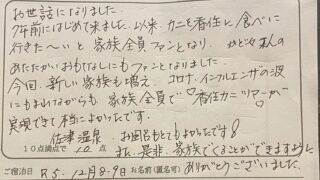 お世話になりました。
7年前にはじめて来ました。以来、カニを香住に食べに
行きた〜いと家族全員ファンとなり、やどや 私の
あたたかいおもてなしにもファンとなりました。
今回、新しい家族も増え、コロナ、インフルエンザの波
にもまけながらも、家族全員で♡香住カニツアーが♡
実現できて本当によかったです。
佐津温泉 お風呂もとてもよかったです!
10点満点で 10 点 また、是非、家族でくることができますように
ご宿泊日 R5. 12月8-9日 お名前(匿名可) ありがとうございました。